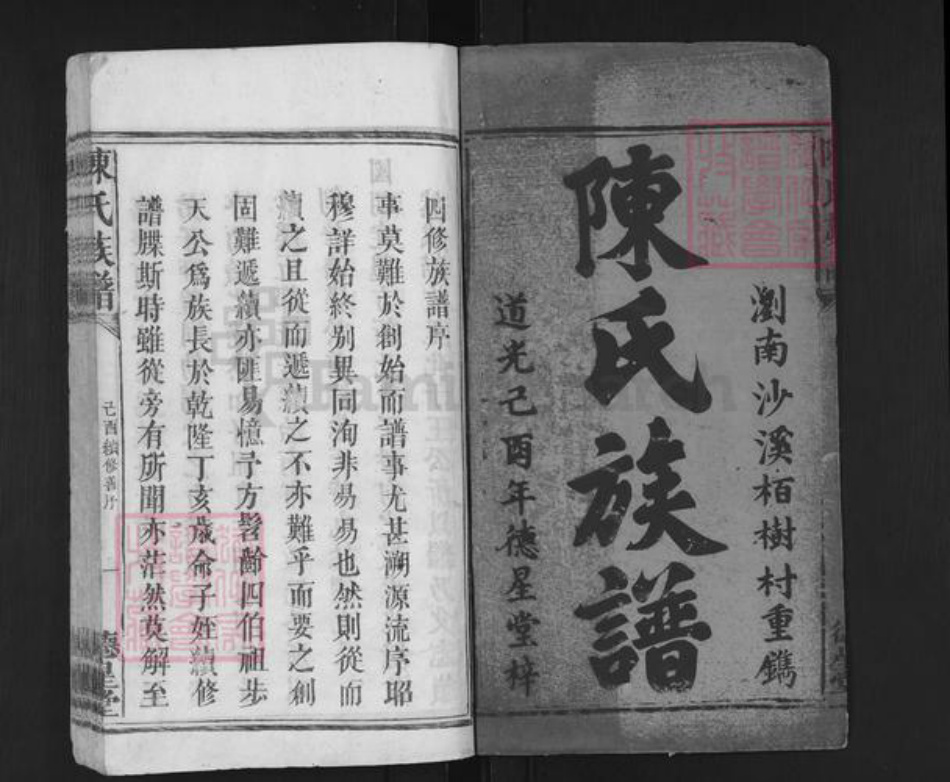 瀏南沙溪栢樹村重鐫
陳氏族譜
道光己酉年德星堂梓
四修族譜序
事莫難於創始而譜事尤甚溯源流序昭
穆詳始終别異同洵非易易也然則從而
續之且從而遞續之不亦難乎而要之創
固難遞續亦匪易憶予方髫齡四伯祖步
天公爲族長於乾隆丁亥歲命子姪續修
譜牒斯時雖從旁有所聞亦茫然莫解至
陳氏族譜
己酉續修
一
德星堂